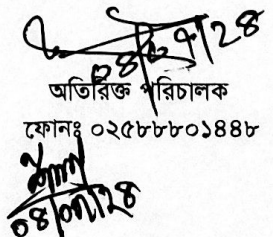 ০৪/০৭/২৪
অতিরিক্ত পরিচালক
ফোনঃ ০২৫৮৮৮০১৪৪৮
০৪/০৭/২৪